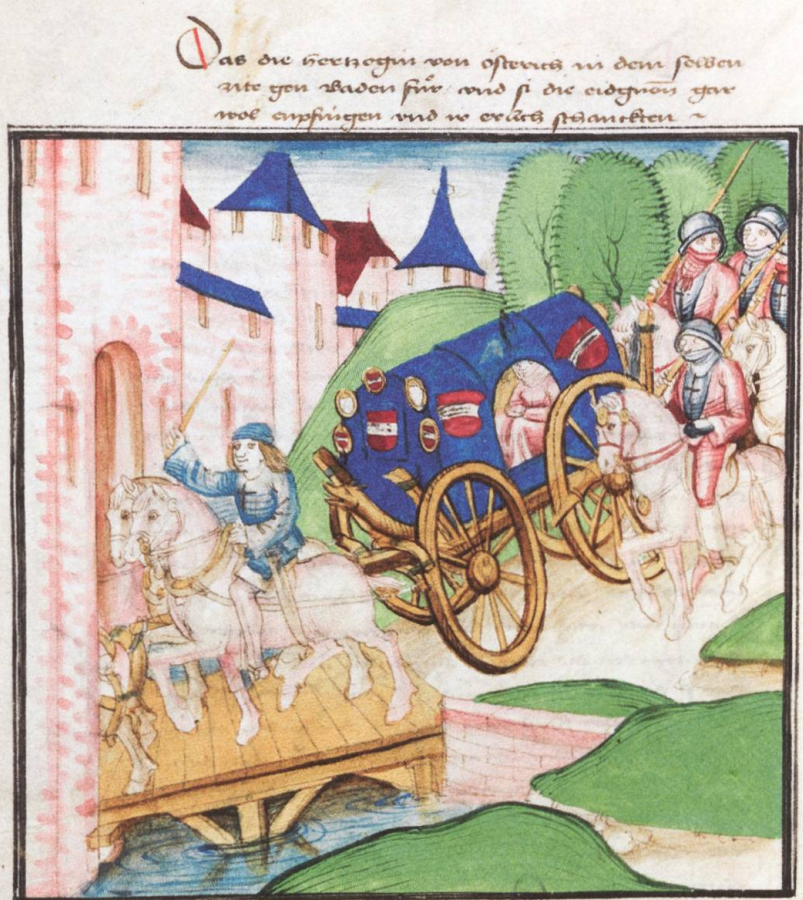 Das die hertzogin von österich in dem selben
zite gen Baden für vnd si die eidgnon̄ gar
wol enpfingen vnd ir erlich schanckten ~